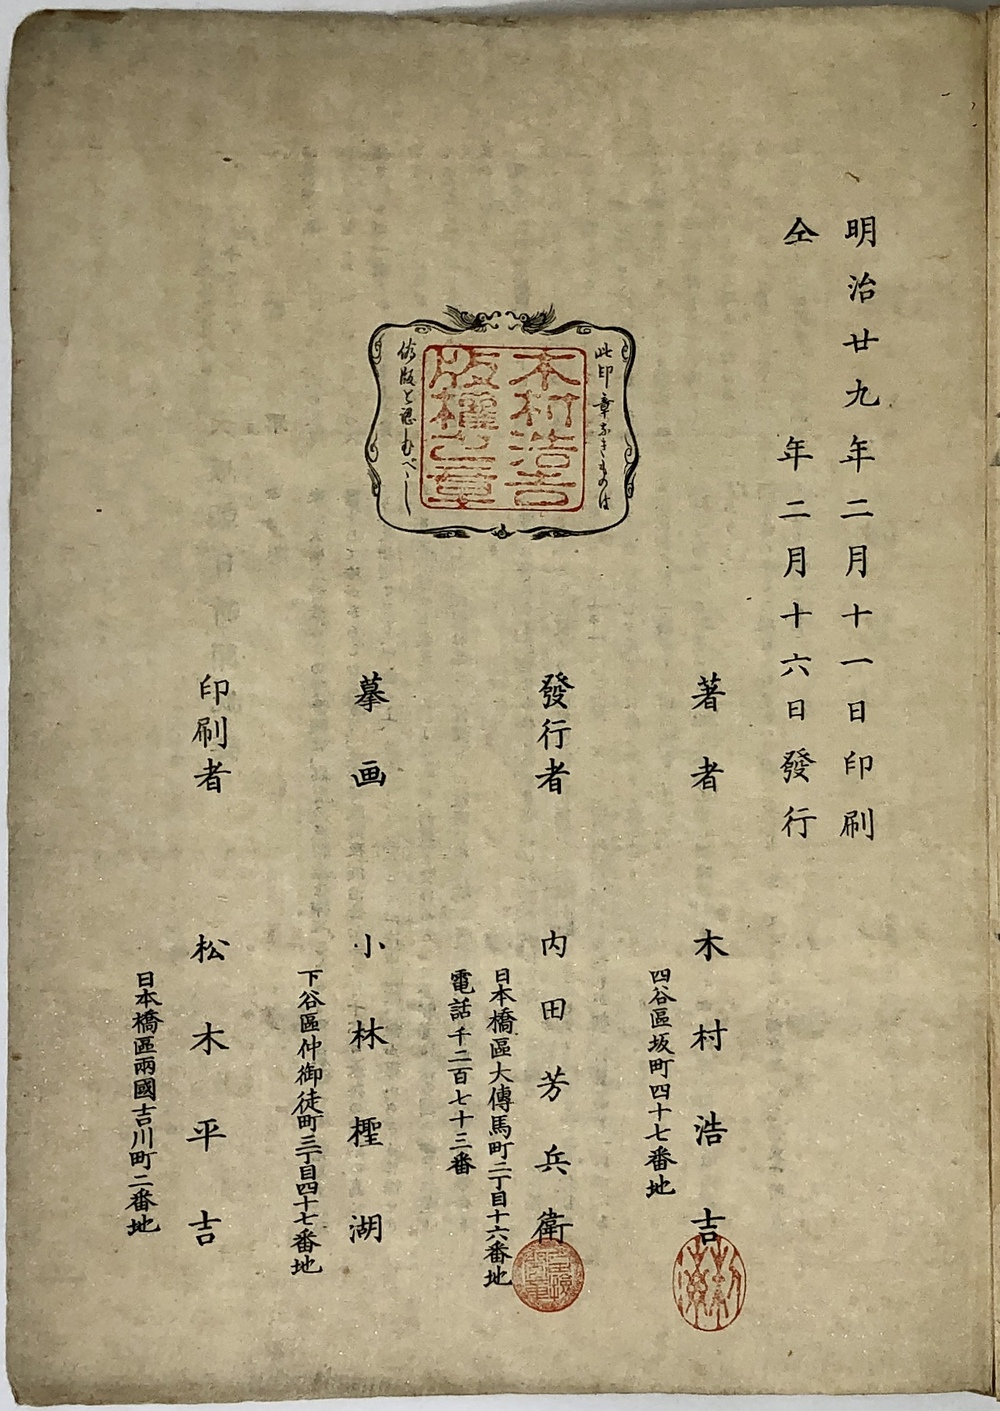 明治廿九年二月十一日印刷
仝年二月十六日發行
此印章なきものは
木村浩吉
版權之章
偽版と認むべし
著者
木村浩吉
四谷區坂町四十七番地
發行者
内田芳兵衛
日本橋區大傳馬町二丁目十六番地
電話千二百七十三番
摹画
小林檉湖
下谷區仲御徒町三丁目四十七番地
印刷者
松木平吉
日本橋區兩國吉川町二番地